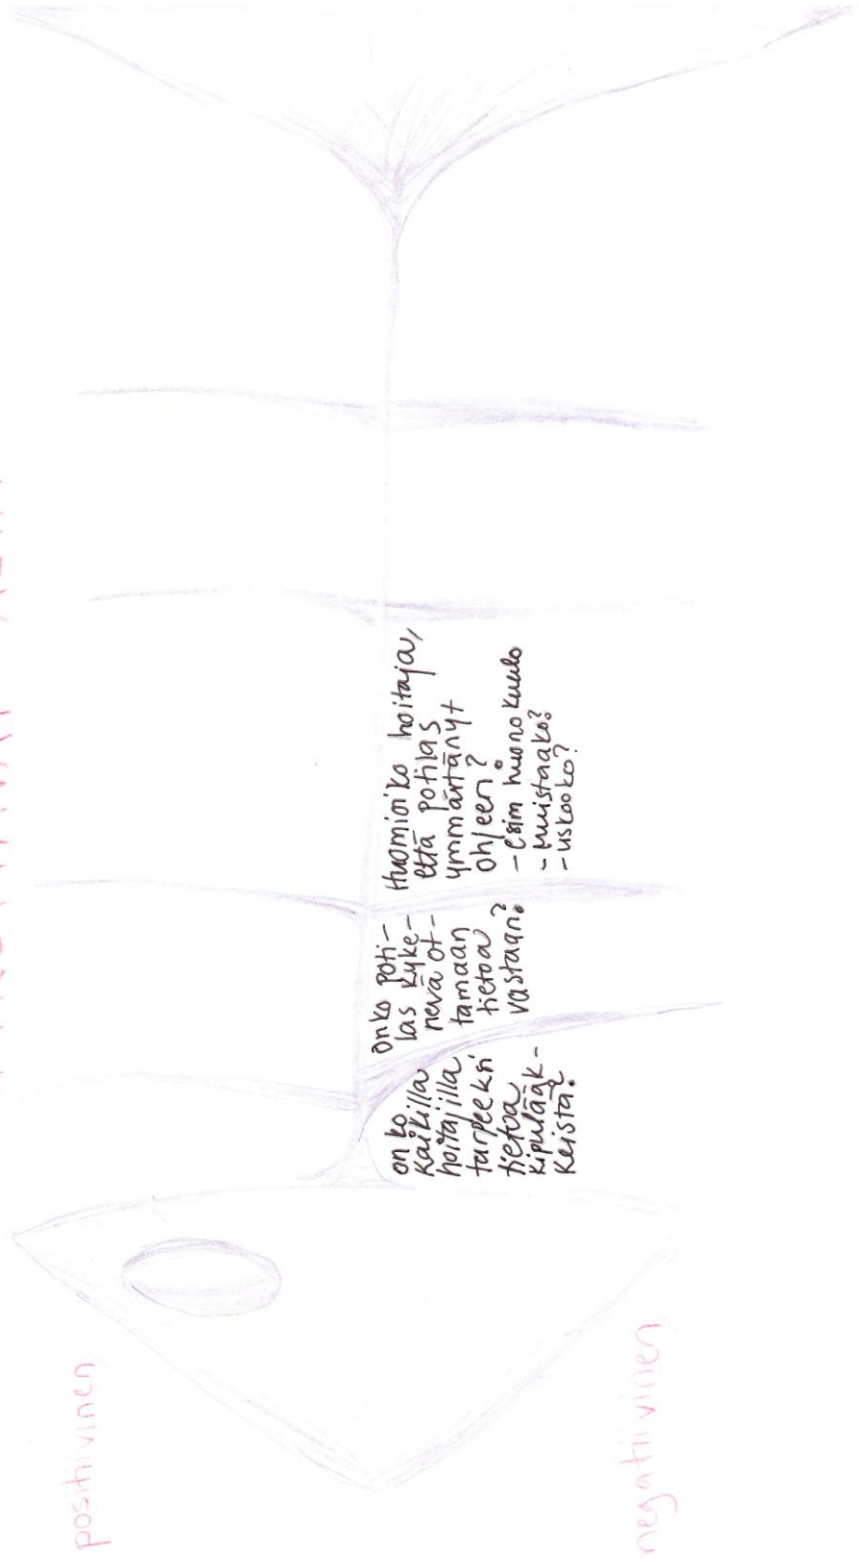 positiivinen
onko
kaikilla
hoitajilla
tarpeeksi
tietoa
kipulääk-
keistä?
onko poti-
las kyke-
nevä ot-
tamaan
tietoa
vastaan?
Huomioiko hoitaja,
että potilas
ymmärtänyt
ohjeen?
- esim huono kuulo
- Muistaako?
- uskooko?
negatiivinen